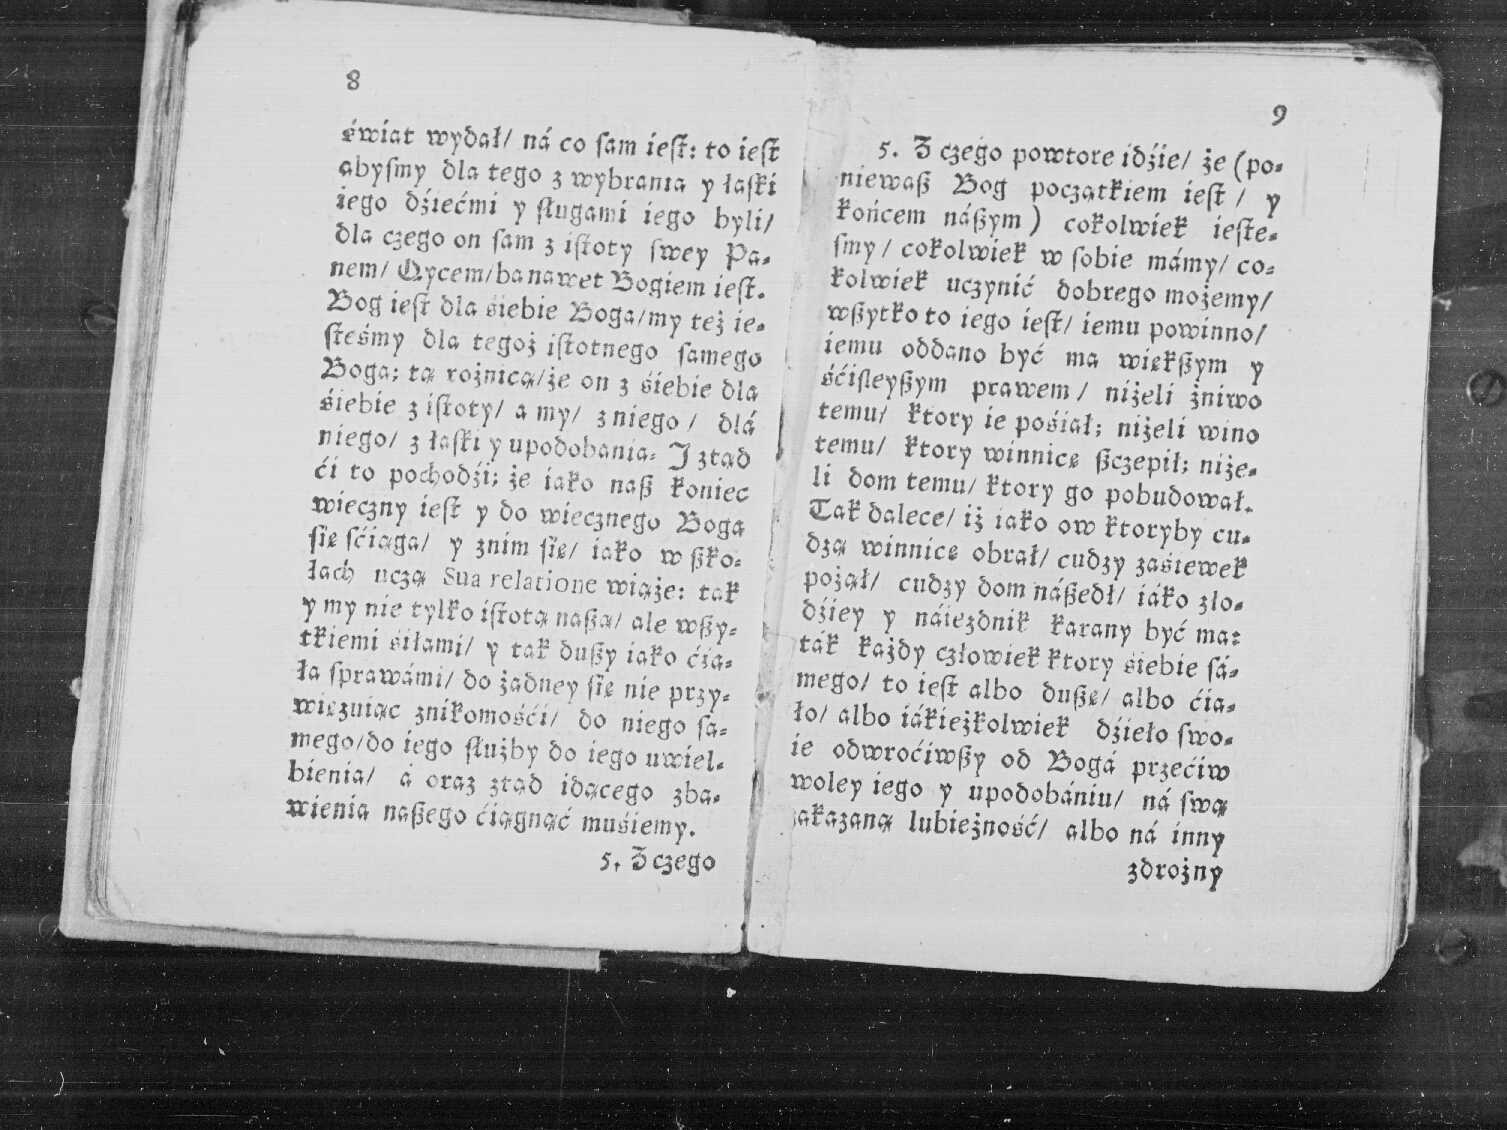 8
świat wydał/ ná co ſam ieſt: to ieſt
abyſmy dla tego z wybrania y łaſki
iego dźiećmi y ſługami iego byli/
dla czego on ſam z iſtoty ſwey Pa-
nem/ Oycem/ ba nawet Bogiem ieſt.
Bog ieſt dla siebie Boga/ my też ie-
ſteśmy dla tegoż iſtotnego ſamego
Boga; tą rożnicą/ że on z śiebie dla
śiebie z iſtoty/ a my/ z niego/ dlá
niego/ z łaſki y upodobania. J ztąd
ći to pochodźi; że iako naß koniec
wieczny ieſt y do wiecznego Boga
ſię ſćiąga/ y znim ſię/ iako w ßko-
łach uczą Sua relatione wiąże: tak
y my nie tylko iſtotą naßą/ ale wßy-
tkiemi śiłami/ y tak dußy iako ćia-
ła ſprawámi/ do żadney ſię nie przy-
więzuiąc znikomośći/ do niego ſa-
mego/ do iego ſłużby do iego uwiel-
bienia/ á oraz ztąd idącego zba-
wienia naßego ćiągnąć muśiemy.
5. Z czego
9
5. Z czego powtore idźie/ że (po-
niewaß Bog początkiem ieſt/ y
końcem náßym) cokolwiek ieſte-
ſmy/ cokolwiek w ſobie mámy/ co-
kolwiek uczynić dobrego możemy/
wßytko to iego ieſt/ iemu powinno/
iemu oddano być ma więkßym y
śćiſleyßym prawem/ niżeli żniwo
temu/ ktory ie pośiał; niżeli wino
temu/ ktory winnicę ßczepił; niże-
li dom temu/ ktory go pobudował.
Tak dalece/ iż iako ow ktoryby cu-
dzą winnicę obrał/ cudzy zasiewek
pojął/ cudzy dom náßedł/ iáko zło-
dźiey y náiezdnik karany być ma:
ták każdy człowiek ktory siebie ſá-
mego/ to ieſt albo dußę/ albo ćia-
ło/ albo iákieżkolwiek dźieło ſwo-
ie odwroćiwßy od Bogá przećiw
woley iego y upodobániu/ ná ſwą
zakazaną lubieżność/ albo ná inny
zdrożny